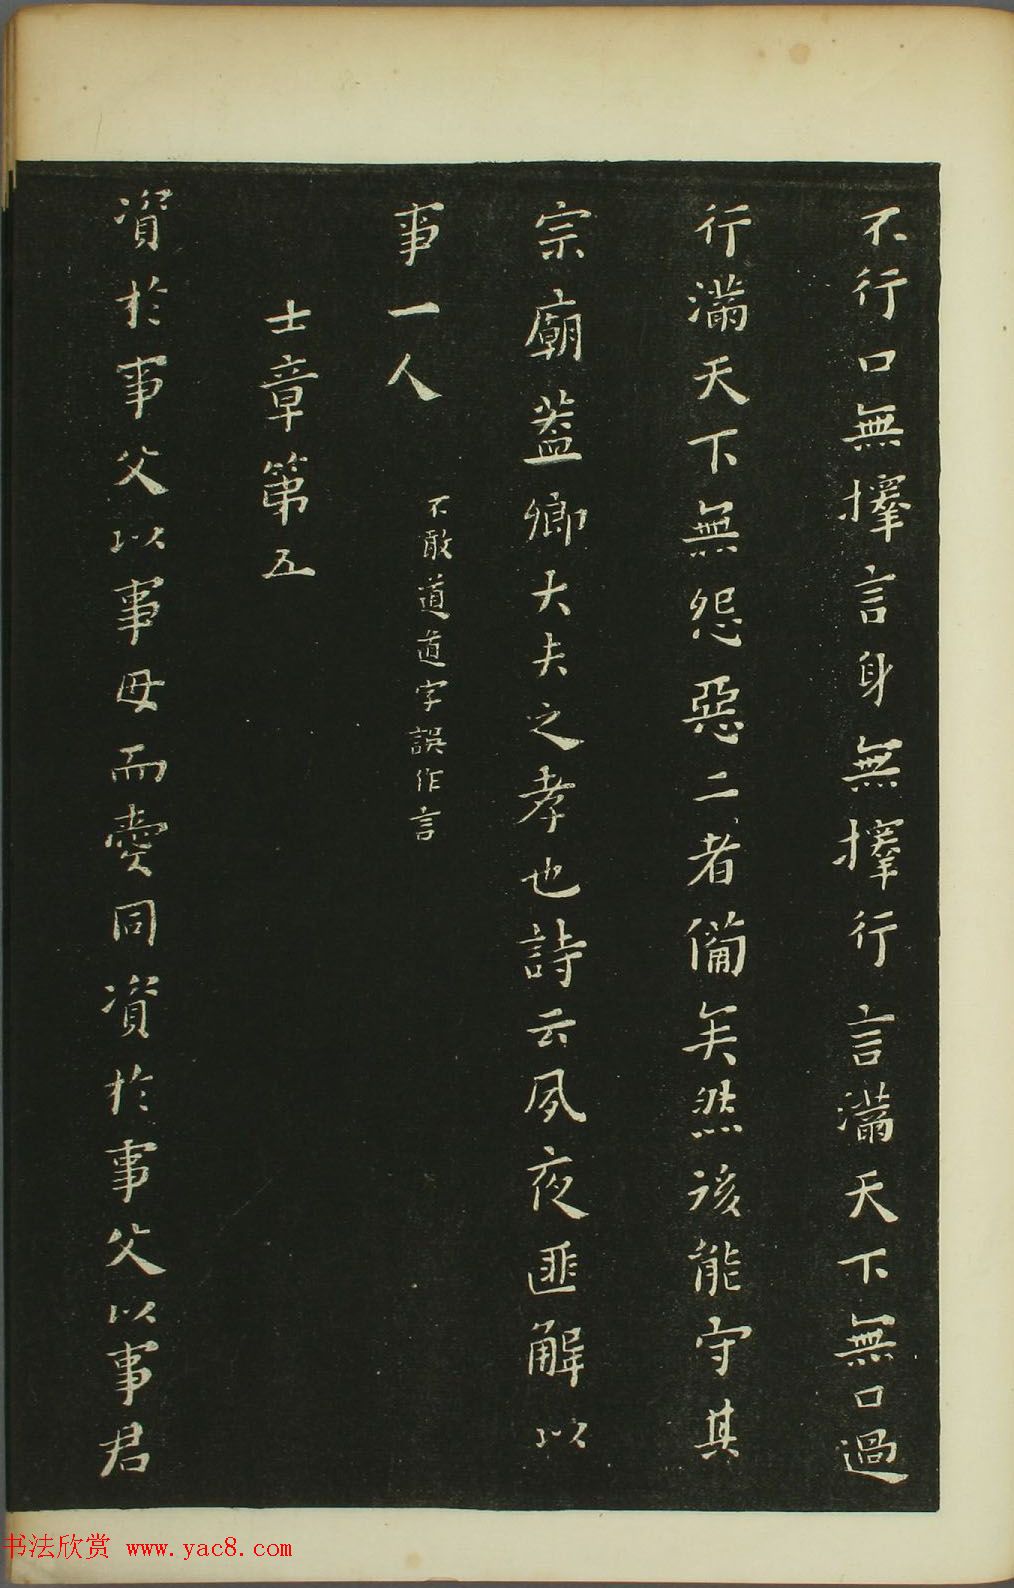 不行口無擇言身無擇行言滿天下無口過
行滿天下無怨惡二者備矣然後能守其
宗廟蓋卿大夫之孝也詩云夙夜匪解以
事一人
不敢道道字誤作言
士章第五
資於事父以事母而愛同資於事父以事君
书法欣赏 www.yac8.com